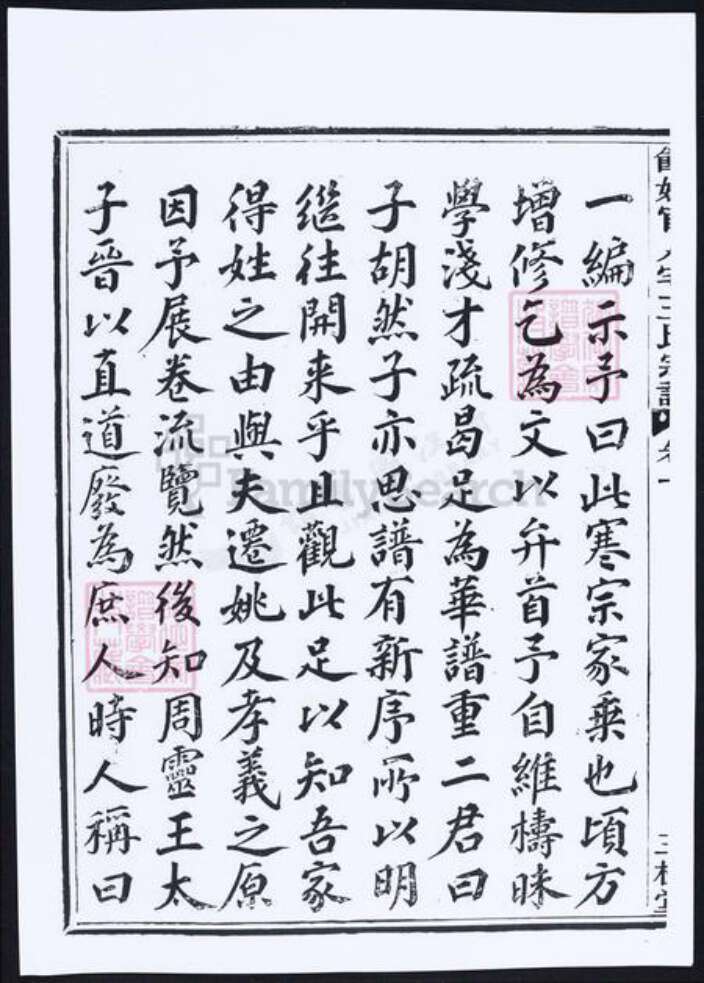 一編示予曰此寒宗家乗也頃方
增修乞為文以弁首予自維檮昧
學淺才疏曷足為華譜重二君曰
子胡然子亦思譜有新序所以明
繼往開来乎且觀此足以知吾家
得姓之由與夫遷姚及孝義之原
因予展卷流覽然後知周靈王太
子晉以直道廢為庶人時人稱曰
FamilySearch